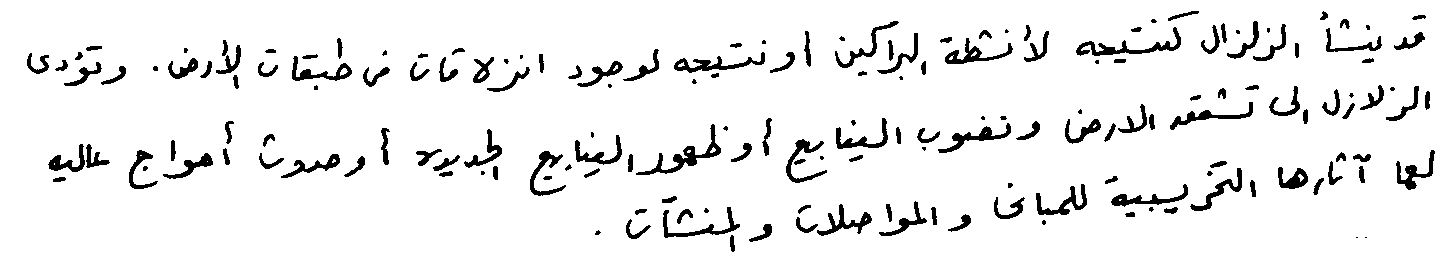 قد ينشأ الزلزال كنتيجه لأنشطة البراكين أو نتيجه لوجود انزلاقات فى طبقات الأرض. وتؤدى
الزلازل الى تشقق الارض ونضوب الينابيع أو ظهور الينابيع الجديده أو حدوث أمواج عاليه
لها آثارها التخريبية للمبانى والمواصلات والمنشآت .